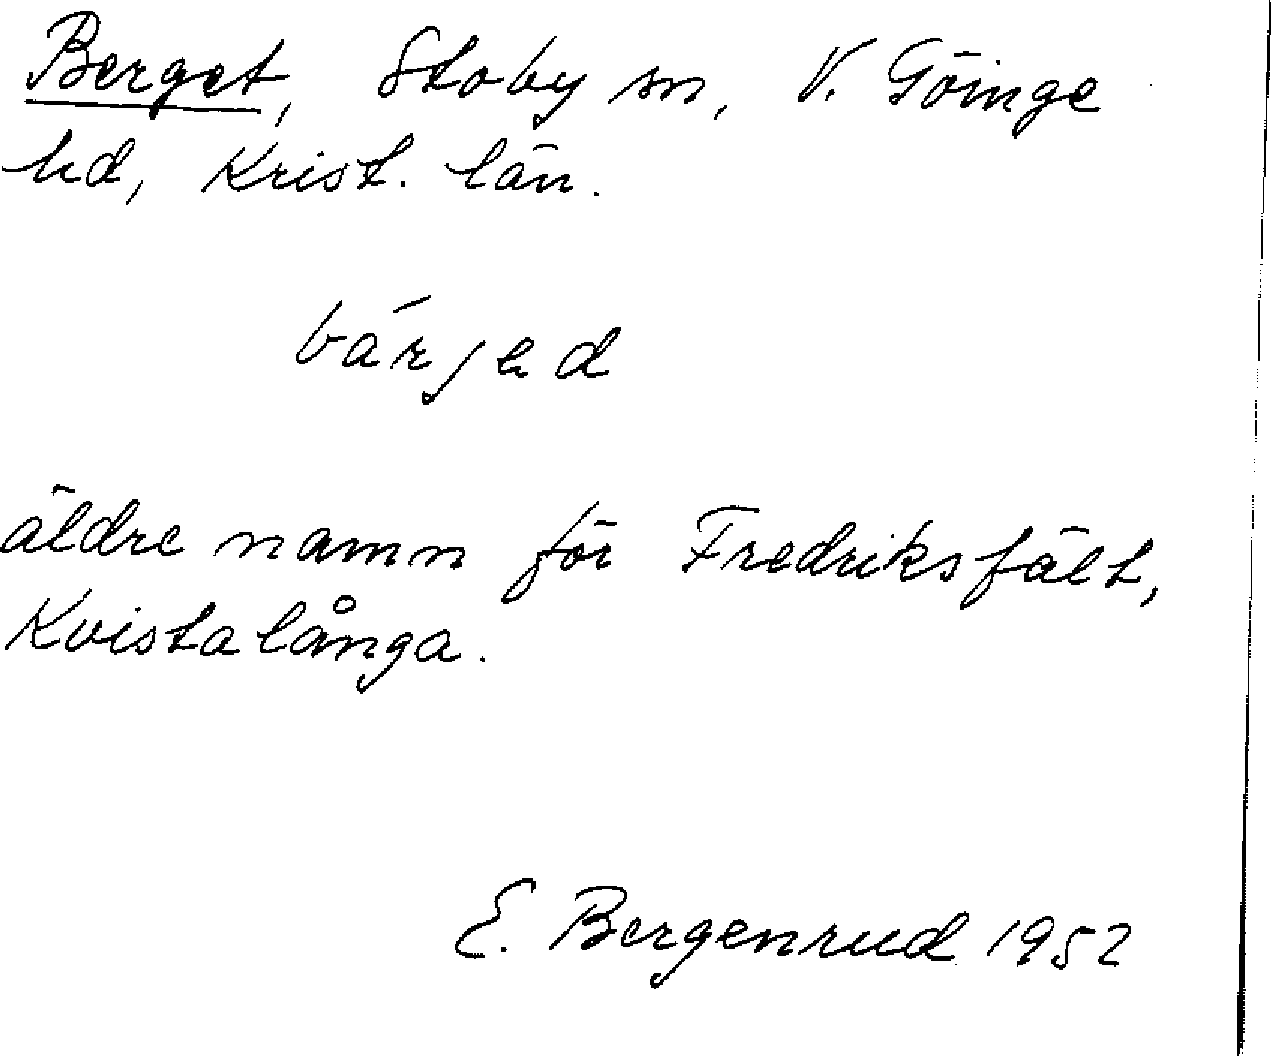 Berget, Stoby sn, V. Göinge
hd, Krist. län.
bärjed
äldre namn för Fredriksfält,
Kvistalånga.
E. Bergenrud 1952